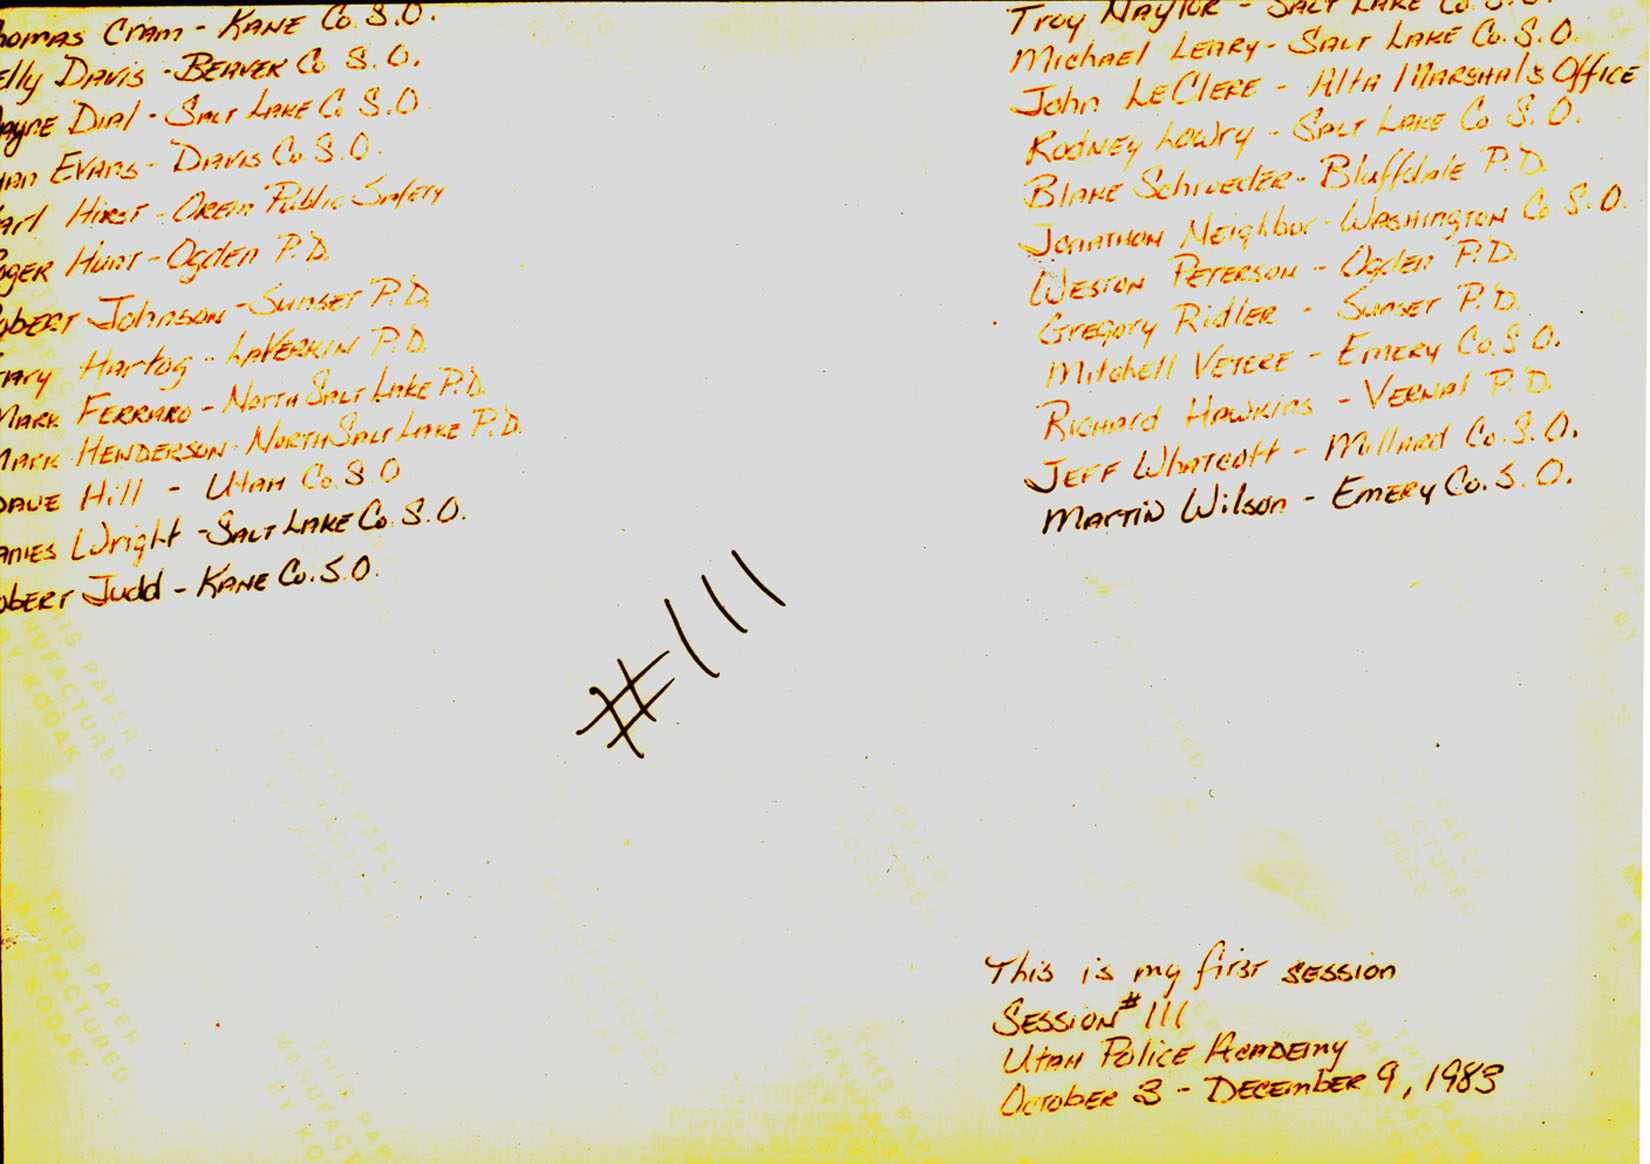 homas Cram - Kane Co. S.O.
elly Davis - Beaver Co. S.O.
ayne Dial - Salt Lake Co S.O
an Evans - Davis Co. S.O.
arl Hirst - Orem Public Safety
oger Hunt - Ogden P.D.
obert Johnson - Sunset P.D.
ary Hartog - LaVerkin P.D.
Mark Ferraro - North Salt Lake P.D.
Mark Henderson - North Salt Lake P.D.
Dave Hill - Utah Co. S.O
ames Wright - Salt Lake Co. S.O.
obert Judd - Kane Co. S.O.
Troy Naylor - Salt Lake Co. S.O.
Michael Leary - Salt Lake Co. S.O.
John LeClere - Alta Marshal's Office
Rodney Lowry - Salt Lake Co. S.O.
Blake Schroeder - Bluffdale P.D.
Jonathon Neighbor - Washington Co S.O.
Weston Peterson - Ogden P.D.
Gregory Ridler - Sunset P.D.
Mitchell Vetere - Emery Co. S.O.
Richard Hawkins - Vernal P.D.
Jeff Whatcott - Millard Co. S.O.
Martin Wilson - Emery Co. S.O.
#111
This is my first session
Session #111
Utah Police Academy
October 3 - December 9, 1983
THIS PAPER
MANUFACTURED
BY KODAK